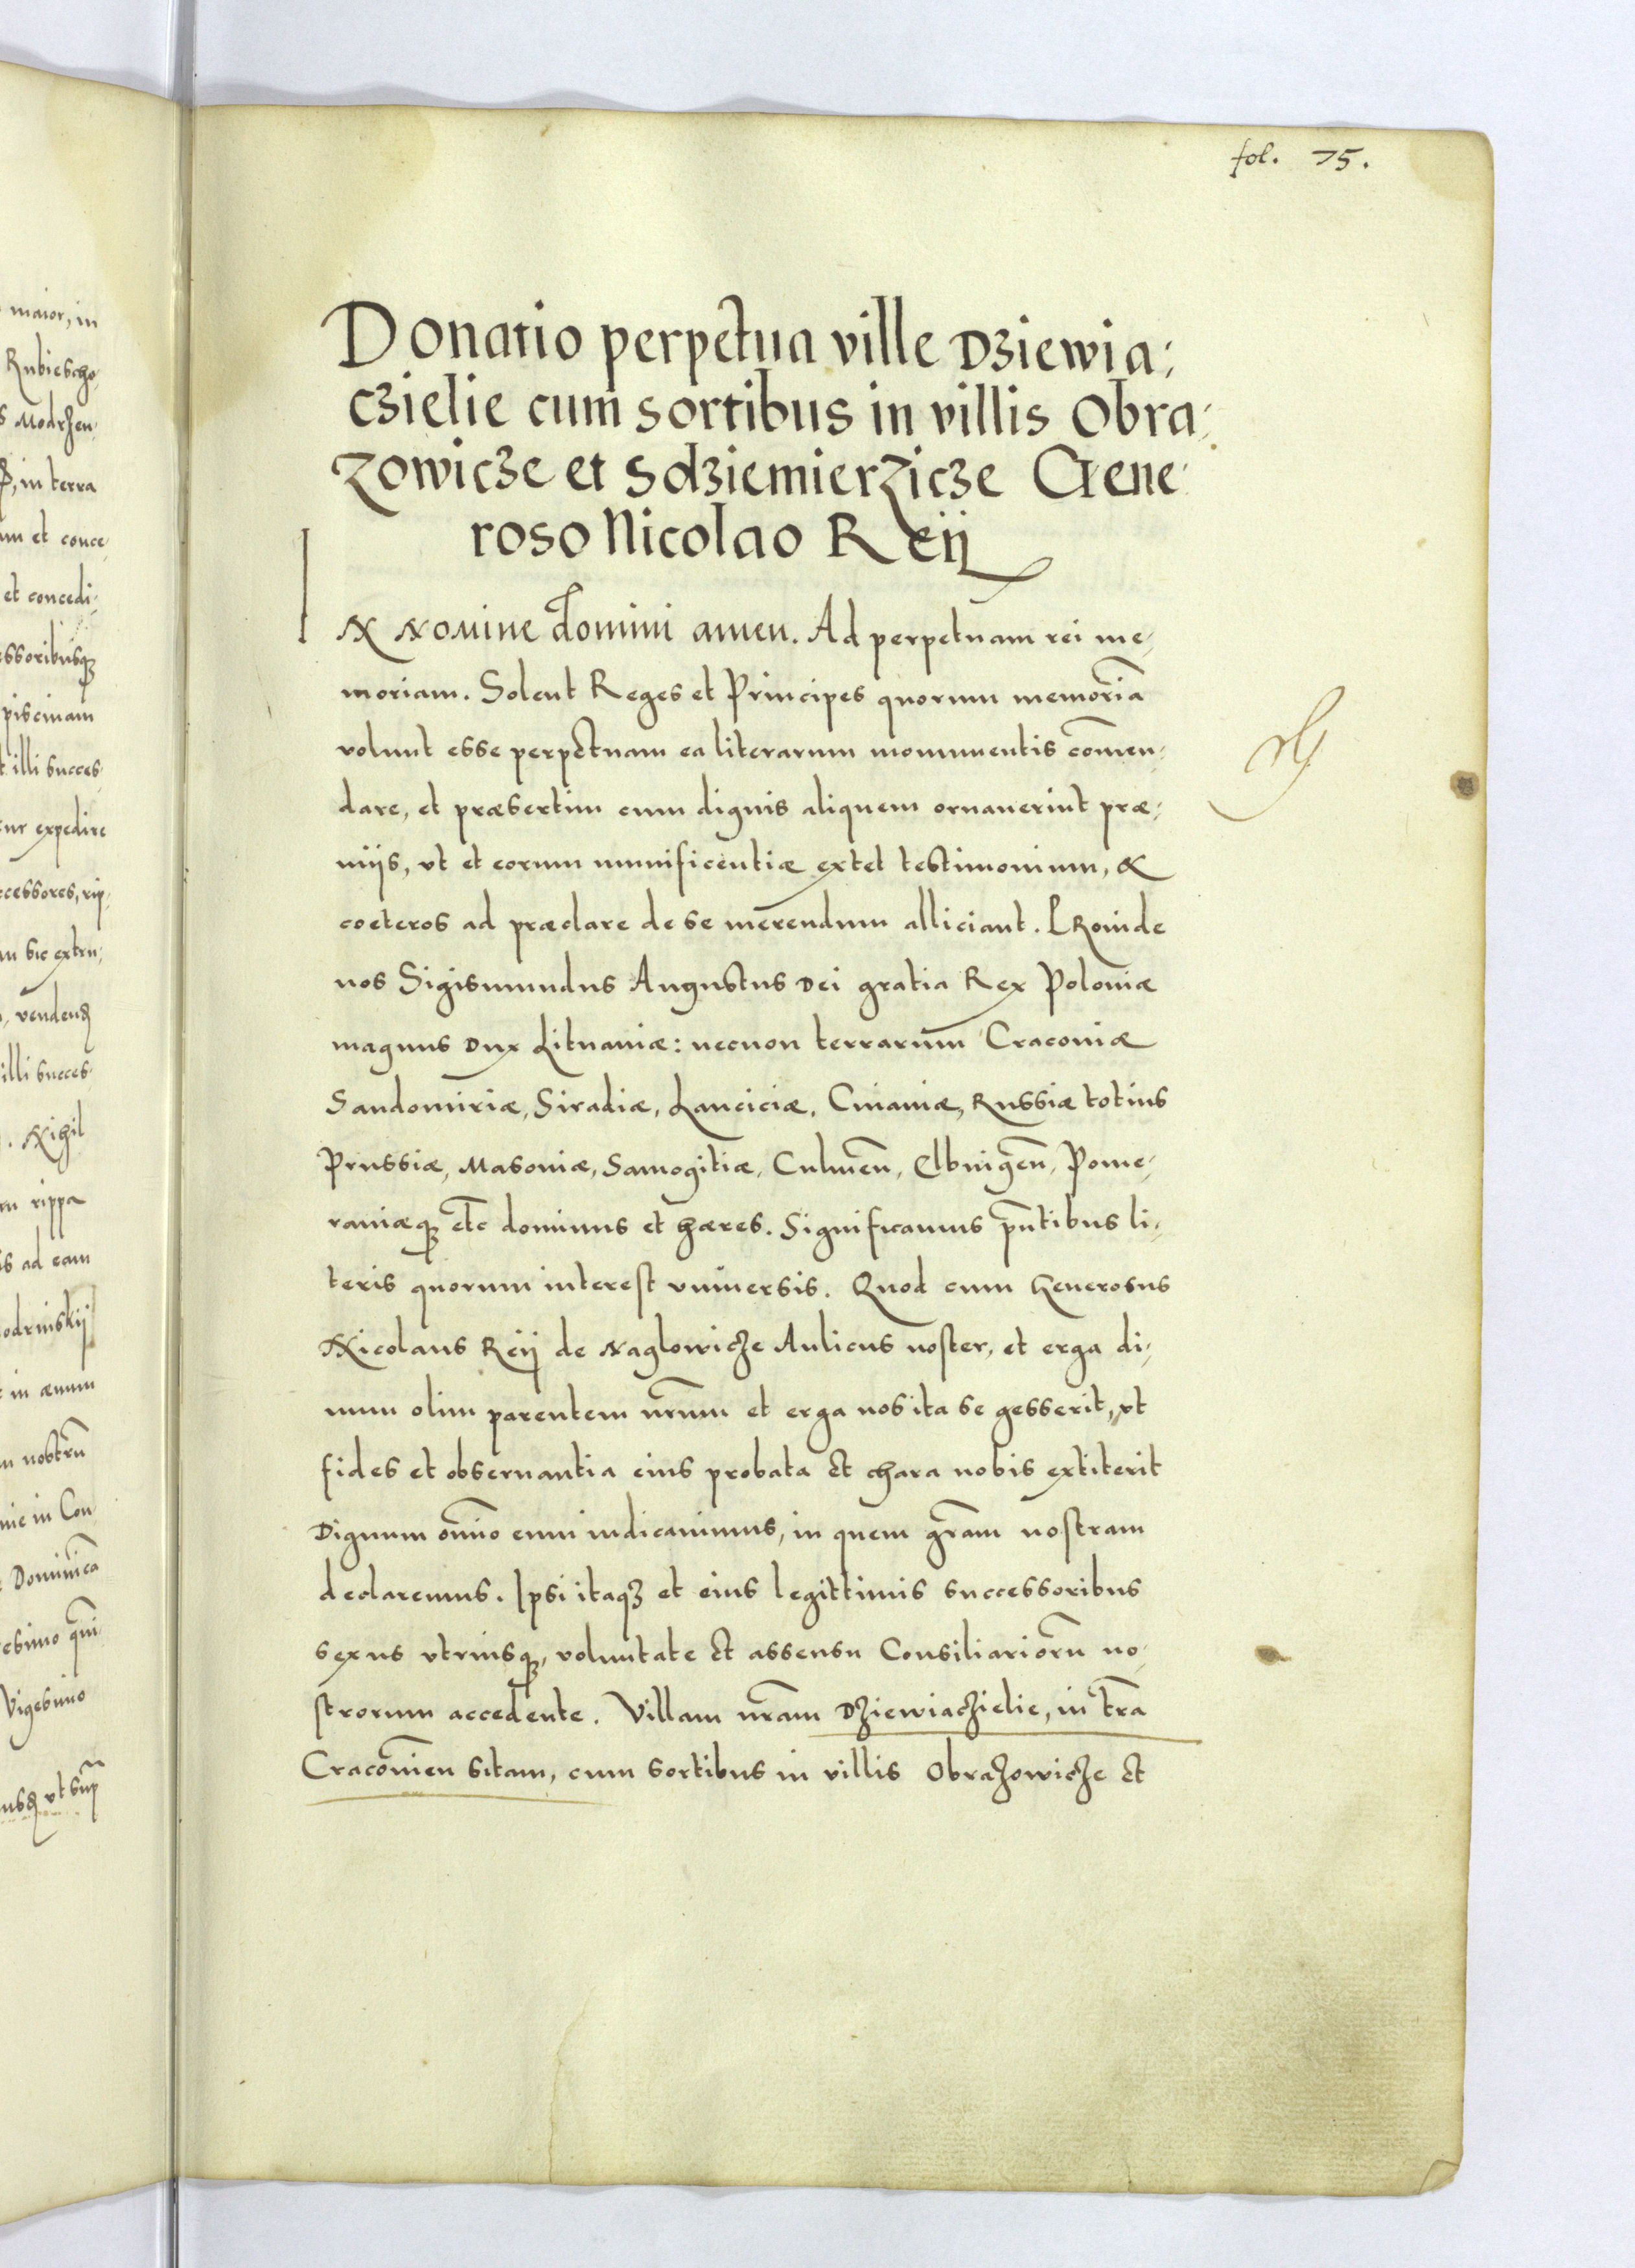 maior, in
Rubiescho-
s Modrzen-
in terra
um et conce-
et concedi-
essoribusq3
piscinam
illi succes-
expedire
ccessores, rip-
sic extru-
vendend
illi succes-
. Nihil
rippa
is ad eam
odrinskij
in æuum
nostrũ
in Con
Dominica
esimo qui
Vigesimo
ut sup
fol. 75.
Donatio perpetua ville Dziewia-
czielie cum sortibus in villis Obra-
zowicze et Sdziemierzicze Gene-
roso Nicolao Reij
IN NOMINE domini amen. Ad perpetuam rei me-
moriam. Solent Reges et Principes quorum memoria
volunt esse perpetuam ea literarum monumentis cõmen-
dare, et præsertim cum dignis aliquem ornauerint præ-
mijs, vt et eorum munificentiæ extet testimonium, &
coeteros ad præclare de se merendum alliciant. PRoinde
nos Sigismundus Augustus Dei gratia Rex Poloniæ
magnus Dux Lituaniæ: necnon terrarum Cracouiæ
Sandomiriæ, Siradiæ, Lanciciæ, Cuiauiæ, Russiæ totius
Prussiæ, Masouiæ, Samogitiæ, Culmeñ, Elbingeñ, Pome-
raniæq3 etc dominus et hæres. Significamus pñtibus li-
teris quorum interest vniuersis. Quod cum Generosus
Nicolaus Reij de Naglowicze Aulicus noster, et erga di-
uum olim parentem nrũm et erga nos ita se gesserit, vt
fides et obseruantia eius probata et chara nobis extiterit
Dignum oñino eum iudicauimus, in quem grãm nostram
declaremus. Ipsi itaq3 et eius legittimis successoribus
sexus vtriusq3, voluntate et assensu Consiliariorũ no-
strorum accedente. Villam nrãm Dziewiaczielie, in trã
Cracouieñ sitam, cum sortibus in villis Obrazowicze et